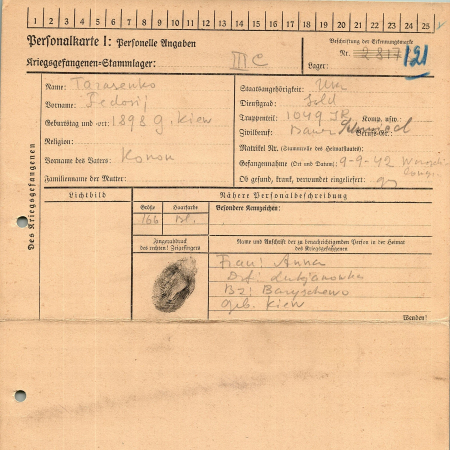 1 2 3 4 5 6 7 8 9 10 11 12 13 14 15 16 17 18 19 20 21 22 23 24 25
Personalkarte I: Personelle Angaben
Kriegsgefangenen-Stammlager: III C
Beschriftung der Erkennungsmarke
Nr. 2817 121
Lager:
Des Kriegsgefangenen
Name: Tarasenko
Vorname: Fedorij
Geburtstag und -ort: 1898 g. Kiew
Religion:
Vorname des Vaters: Konon
Familienname der Mutter:
Staatsangehörigkeit: Ukr
Dienstgrad: Sold
Truppenteil: 1049 JR Komp. usw.:
Zivilberuf: Bauer Berufs-Gr.:
Matrikel Nr. (Stammrolle des Heimatstaates):
Gefangennahme (Ort und Datum): 9-9-42
Ob gesund, krank, verwundet eingeliefert:
Lichtbild
Nähere Personalbeschreibung
Größe
Haarfarbe
Besondere Kennzeichen:
166
Bl.
Fingerabdruck
des rechten! Zeigefingers
Name und Anschrift der zu benachrichtigenden Person in der Heimat
des Kriegsgefangenen
Frau: Anna
Drf: Lukjanowka
Bz: Baryschewo
geb. Kiew
Wenden!